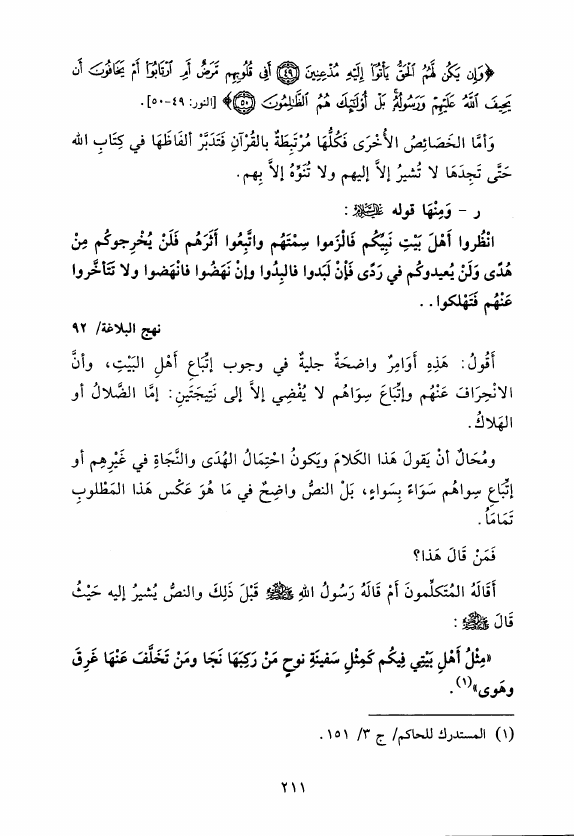 ﴿وَإِن يَكُن لَّهُمُ الْحَقُّ يَأْتُوٓا إِلَيْهِ مُذْعِنِينَ ﴿٤٩﴾ أَفِي قُلُوبِهِم مَّرَضٌ أَمِ ارْتَابُوٓا أَمْ يَخَافُونَ أَن
يَحِيفَ اللَّهُ عَلَيْهِمْ وَرَسُولُهُۥ بَلْ أُولَٰٓئِكَ هُمُ الظَّالِمُونَ ﴿٥٠﴾﴾ [النور: ٤٩-٥٠].
وَأمَّا الخَصَائِصُ الأُخْرَى فَكُلُّهَا مُرْتَبِطَةٌ بالقُرْآنِ فَتَدَبَّرْ ألفَاظَهَا في كِتَابِ الله
حَتَّى تَجِدَهَا لا تُشيرُ إلاَّ إليهم ولا تُنَوِّهُ إلاَّ بِهم.
ر - وَمِنْهَا قوله عليه السلام :
انْظُروا أَهْلَ بَيْتِ نَبِيِّكُم فَالْزَموا سِمْتَهُم واتَّبِعُوا أثَرَهُم فَلَنْ يُخْرِجوكُم مِنْ
هُدًى وَلَنْ يُعيدوكُم في رَدًى فَإنْ لَبَدوا فالبِدُوا وإنْ نَهَضُوا فانْهَضوا ولا تَتَأخَّروا
عَنْهُم فَتَهْلِكوا . .
نهج البلاغة/ ٩٢
أقُولُ: هَذِهِ أوَامِرٌ واضحَةٌ جليةٌ في وجوب إتِّبَاعِ أَهْلِ البَيْتِ، وأنَّ
الانْحِرَافَ عَنْهُم وإتِّبَاعَ سِوَاهُم لا يُفْضِي إلاَّ إلى نَتِيجَتَينِ: إمَّا الضَّلالُ أو
الهَلاكُ.
ومُحَالٌ أنْ يَقولَ هَذا الكَلامَ ويَكونُ احْتِمَالُ الهُدَى والنَّجَاةِ في غَيْرِهِم أو
إتِّبَاعِ سِواهُم سَوَاءً بِسَواءٍ، بَلْ النصُّ واضِحٌ في مَا هُوَ عَكْس هَذا المَطْلوبِ
تَمَامَاً.
فَمَنْ قَالَ هَذا؟
أقَالَهُ المُتَكلِّمونَ أمْ قَالَهُ رَسُولُ اللهِ ﷺ قَبْلَ ذَلِكَ والنصُّ يُشيرُ إليه حَيْثُ
قَالَ ﷺ :
«مِثْلُ أَهْلِ بَيْتِي فِيكُم كَمِثْلِ سَفينَةِ نوحٍ مَنْ رَكِبَهَا نَجَا ومَنْ تَخَلَّفَ عَنْهَا غَرِقَ
وهَوى»(١).
(١) المستدرك للحاكم/ ج ٣/ ١٥١.
٢١١